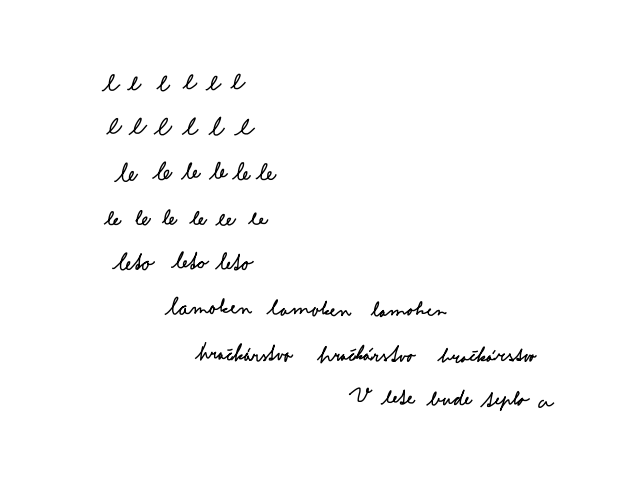 l l l l l l
l l l l l l
le le le le le le
le le le le le le
leto leto leto
lamoken lamoken lamohen
hračkárstvo hračkárstvo hračkárstvo
V lete bude teplo a